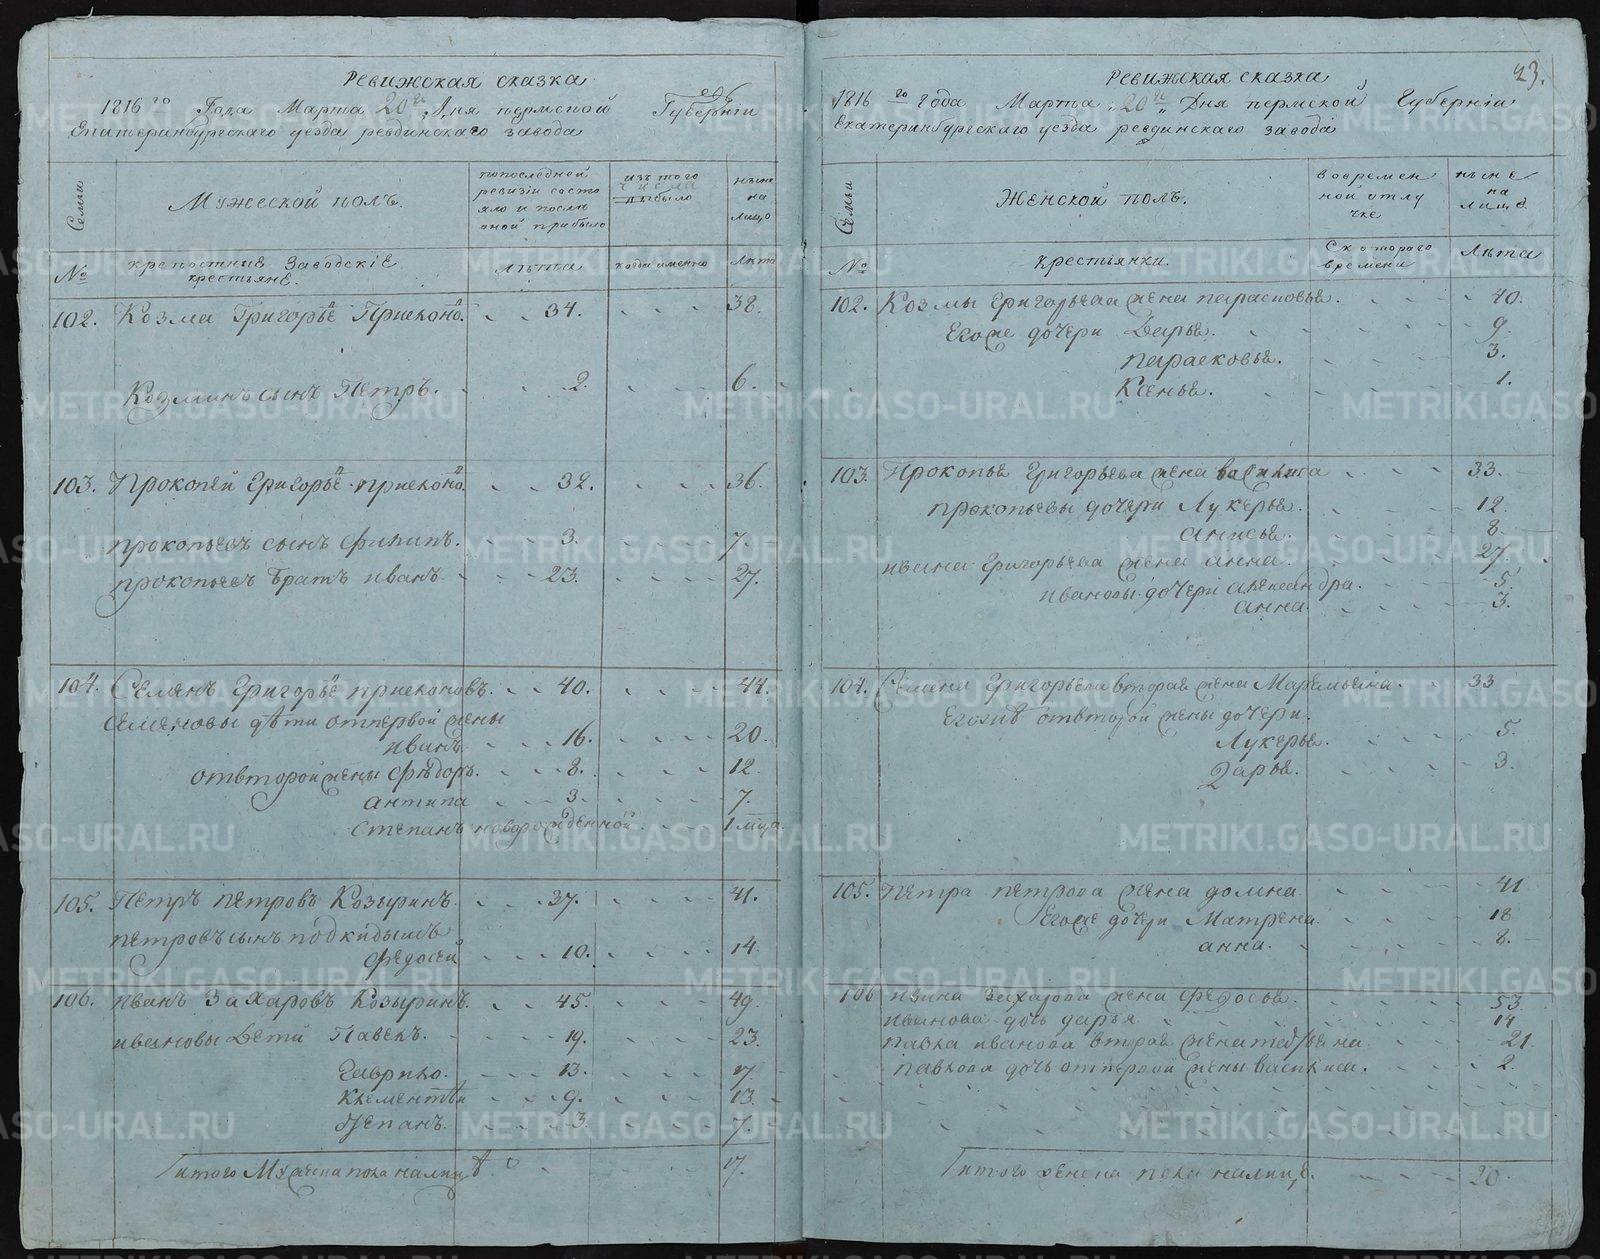 Ревижская сказка
1816го Года Марта 20го Дня пермской Губерніи
Екатеринбургскаго уезда ревдинскаго завода
Семьи
Мужеской полъ.
попоследней ревизіи состояло и после оной прибыло
изъ того числа выбыло
ныне на лицо
№
крепостные Заводскіе крестьяне.
лѣта
когда именно
Лѣта
102. Козма Григорьѣ Присконо. 34. 38.
Козминъ сынъ Петръ. 2. 6.
103. Прокопей Григорьѣ присконо. 32. 36.
прокопьевъ сынъ Филипъ. 3. 7.
прокопьевъ братъ иванъ 23. 27.
104. Семянъ Григорьѣ присконовъ. 40. 44.
Семеновы дѣти отпервой жены
иванъ 16. 20.
отвторой жены Фѣдоръ. 8. 12
антипа 3. 7.
степанъ новорожденной 1 мца
105. Петръ петровъ Козыринъ. 37. 41.
петровъ сынъ подкидышъ
Федосей 10. 14.
106. иванъ Захаровъ Козыринъ. 45. 49.
ивановы Дети Павелъ. 19. 23.
Гаврило. 13. 17.
Клементѣи 9. 13.
Степанъ. 3. 7.
итого Мужеска пола налицѣ 17.
23.
Ревижская сказка
1816го года Марта 20го Дня пермской Губерніи
Екатеринбургскаго уезда ревдинскаго завода
Семьи
Женской полъ.
вовременной отлучке
ныне на лицо
№
крестьянки.
Скотораго времени
Лѣта
102. Козмы Григорьева жена парасковья. 40.
Егоже дочери Дарья. 9.
парасковья. 3.
Ксенья. 1.
103. Прокопья Григорьева жена василиса 33.
прокопьевы дочери Лукерья. 12.
анисья. 8
ивана Григорьева жена анна. 27.
ивановы дочери александра. 5.
анна. 3.
104. Семена Григорьева вторая жена Маремьяна. 33
Егожъ отвторой жены дочери.
Лукерья. 5.
Дарья. 3.
105. Петра петрова жена домна 41
Егоже дочери Матрена. 18
анна. 8.
106 ивана Захарова жена Федосья. 53
иванова дочь дарья 14
павла иванова вторая жена татьяна 21.
павлова дочь отпервой жены василиса. 2.
итого женска пола налице. 20.